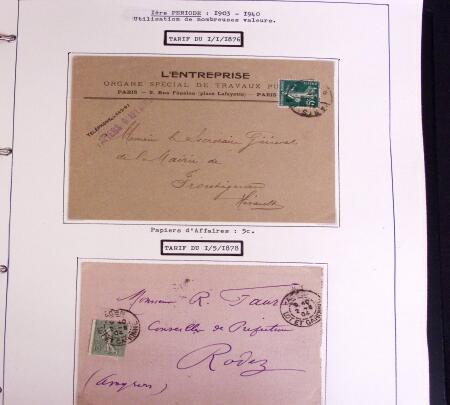 1ère PERIODE : 1903 - 1940
Utilisation de nombreuses valeurs.
TARIF DU 1/1/1876
L'ENTREPRISE
ORGANE SPÉCIAL DE TRAVAUX PU
PARIS — 2, Rue Fénelon (place Lafayette) — PARIS
TÉLÉPHONE
Monsieur le Secrétaire Général
de la Mairie de
Frontignan
Hérault
Papiers d'Affaires : 5c.
TARIF DU 1/5/1878
Monsieur R. Faure
Conseiller de Préfecture
Rodez
(Aveyron)
LOT ET GARONNE